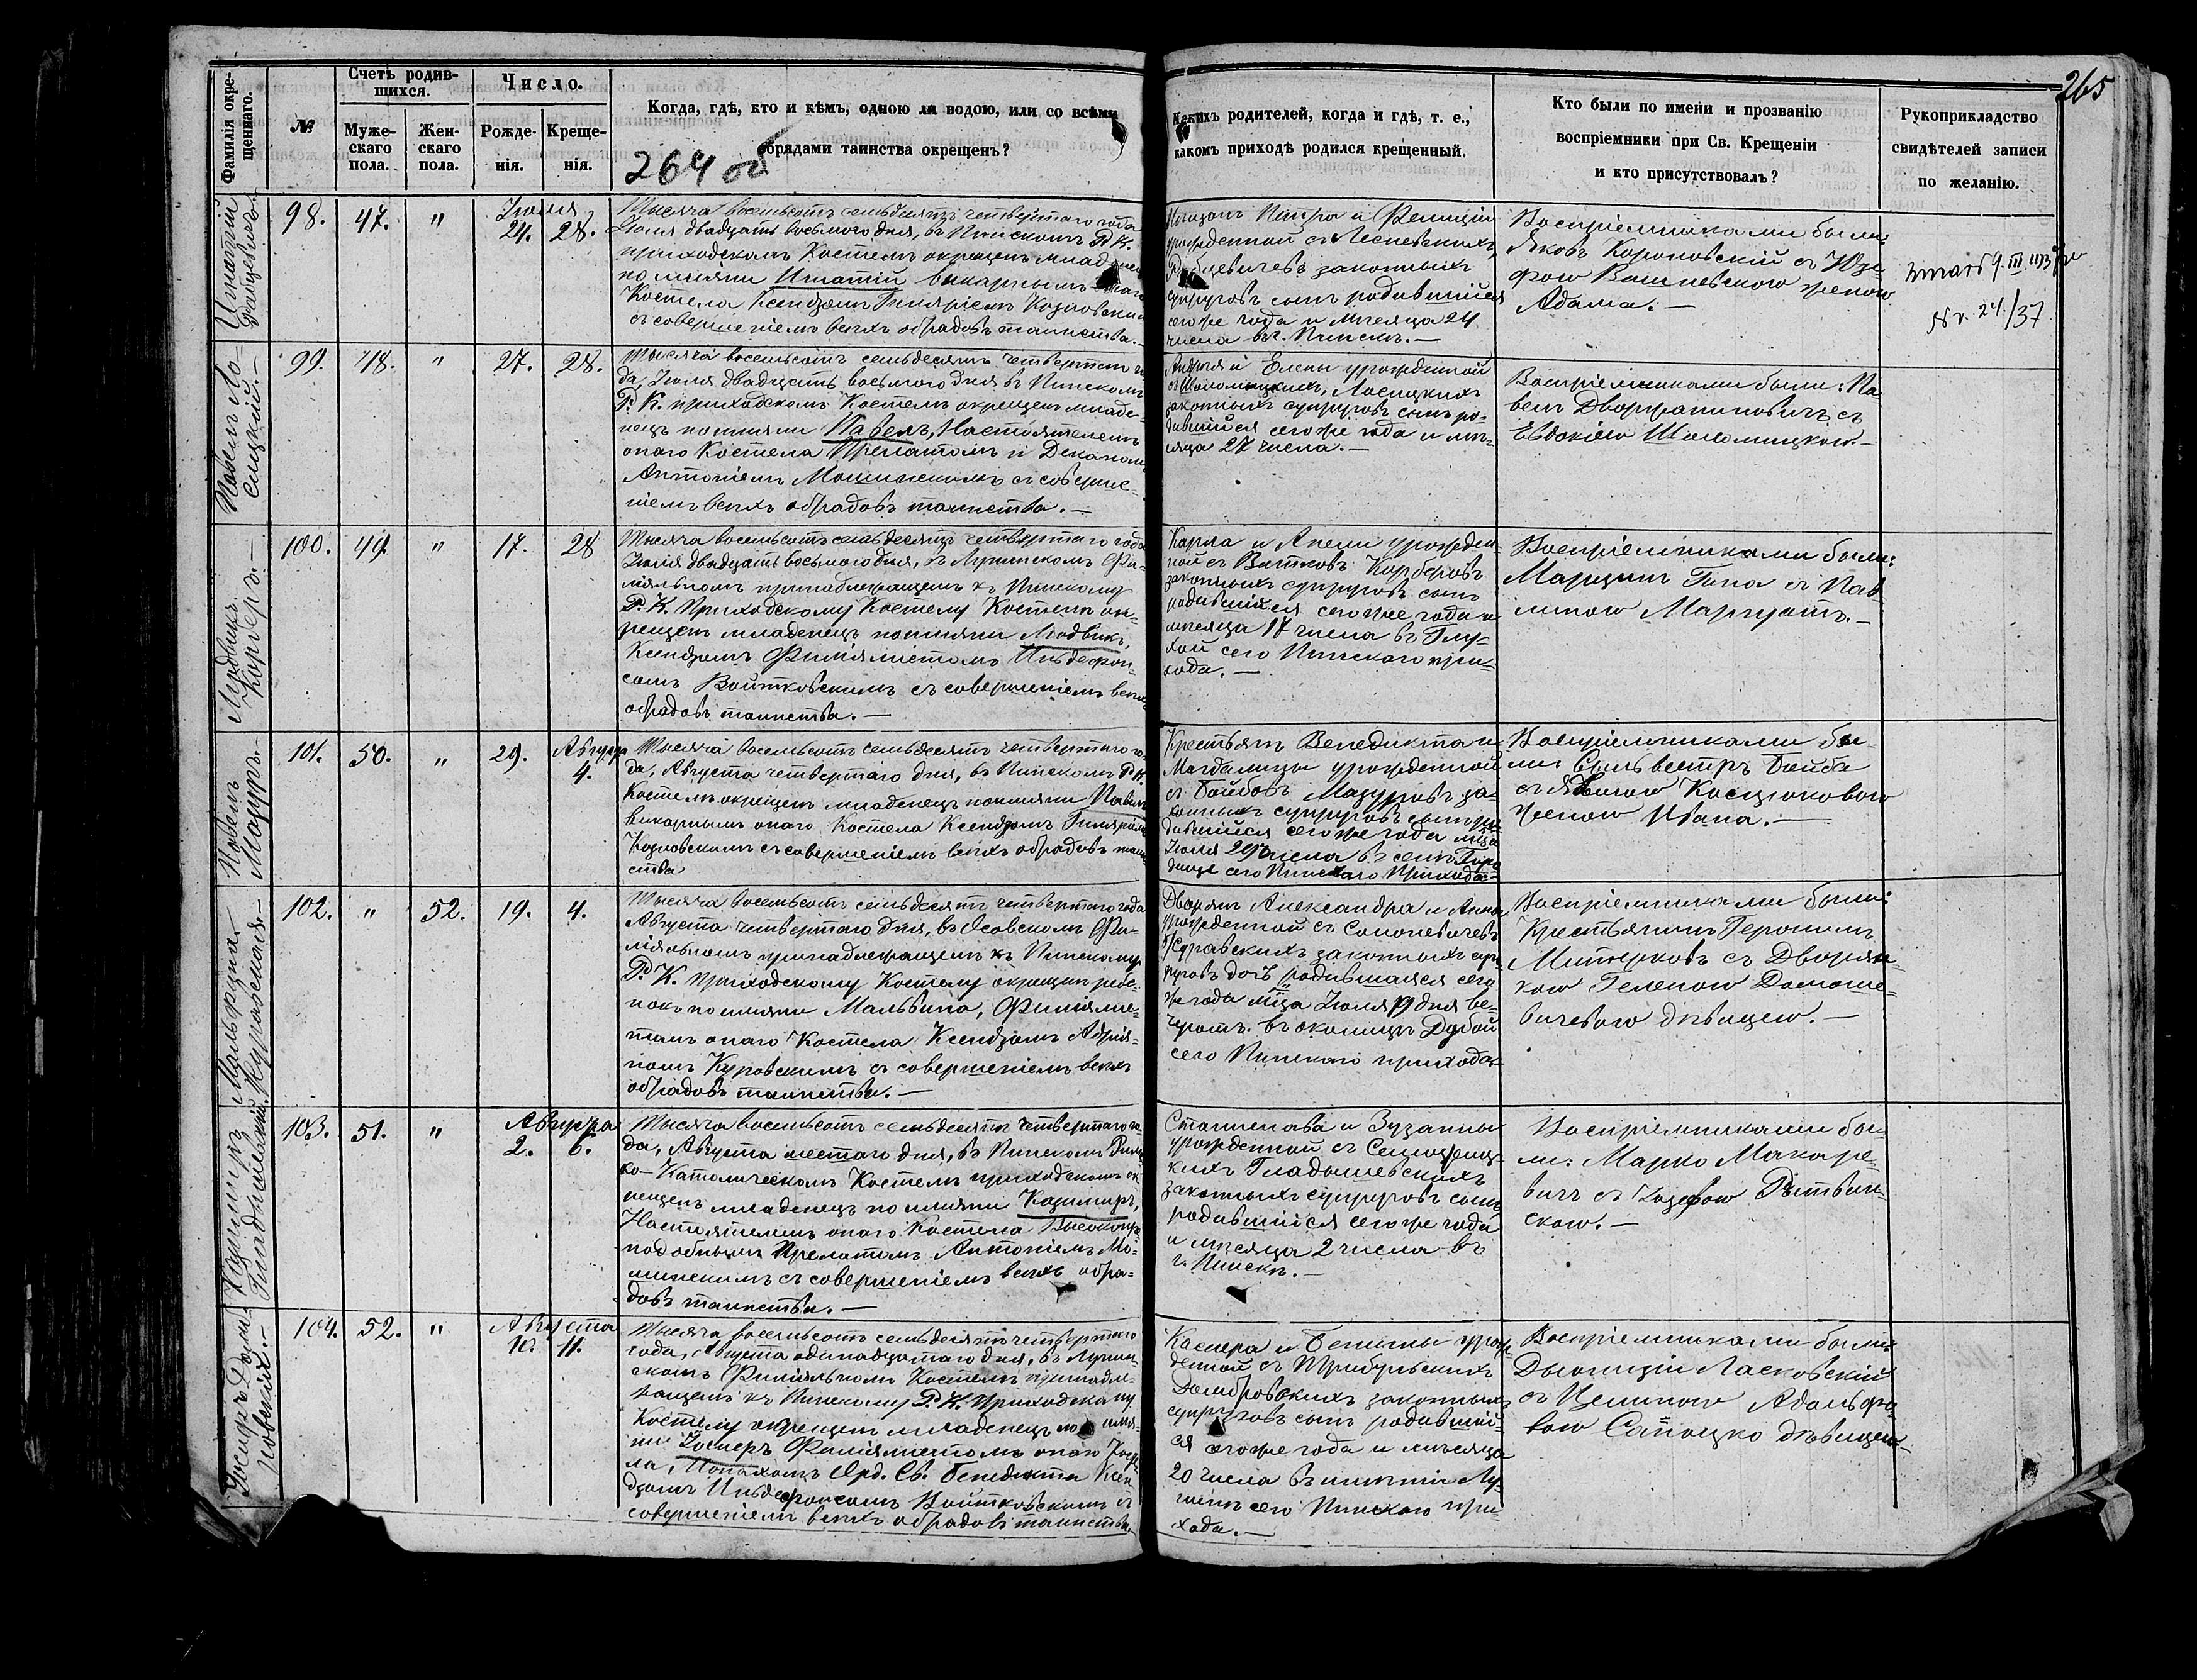 265
Фамилія окрещеннаго.
№
Счетъ родив-
шихся.
Муже-
скаго
пола.
Жен-
скаго
пола.
Число.
Рожде-
нія.
Креще-
нія.
Когда, гдѣ, кто и кѣмъ, одною ли водою, или со всѣми
обрядами таинства окрещенъ?
264 об
какихъ родителей, когда и гдѣ, т. е.,
какомъ приходѣ родился крещенный.
Кто были по имени и прозванію
воспріемники при Св. Крещеніи
и кто присутствовалъ?
Рукоприкладство
свидѣтелей записи
по желанію.
Игнатій
98. 47. " Іюля 24. 28.
Тысяча восемьсотъ семьдесятъ четвертаго года
Іюля двадцать восьмого дня, въ Пинскомъ Р. К.
приходскомъ Костелѣ окрещенъ младенецъ
по имяни Игнатій викарнымъ онаго
Костела Ксендзомъ Гиляріемъ Козловскимъ
съ совершеніемъ всѣхъ обрядовъ таинства.—
Петра и Фелиціи
урожденной съ
законныхъ
супруговъ сынъ родившійся
сего же года и мѣсяца 24
числа въ г. Пинскѣ.—
Воспріемниками были:
Яковъ съ Юзе-
фою женою
Адама.—
9. III 1937
№ 24/37
Павелъ Ло-
сицкій.—
99. 48. " 27. 28.
Тысяча восемьсотъ семьдесятъ четвертаго го-
да, Іюля двадцать восьмого дня въ Пинскомъ
Р. К. приходскомъ Костелѣ окрещенъ младе-
нецъ по имяни Павелъ, Настоятелемъ
онаго Костела Прелатомъ и Деканомъ
Антоніемъ Мошинскимъ съ соверше-
ніемъ всѣхъ обрядовъ таинства.—
Андрея и Елены урожденной
съ Шоломицкихъ, Лосицкихъ
законныхъ супруговъ сынъ ро-
дившійся сего же года и мѣ-
сяца 27 числа.—
Воспріемниками были: Па-
велъ съ
Евдокіею Шоломицкою.—
Людвикъ
Карберъ.—
100. 49. " 17. 28
Тысяча восемьсотъ семьдесятъ четвертаго года
Іюля двадцать восьмого дня, въ Лунинскомъ Фи-
ліяльномъ принадлежащемъ къ Пинскому
Р. К. Приходскому Костелу Костелѣ ок-
рещенъ младенецъ по имяни Людвикъ,
Ксендзомъ Филіялистомъ Ильдефон-
сомъ Войтковскимъ съ совершеніемъ всѣхъ
обрядовъ таинства.—
Карла и Анели урожден-
ной съ Витковъ Карберовъ
законныхъ супруговъ сынъ
родившійся сего же года и
мѣсяца 17 числа въ Глу-
хой сего Пинскаго при-
хода.—
Воспріемниками были:
Марцинъ Гапа съ Пав-
линою
Павелъ
Мазуръ.—
101. 50. " 29. Августа 4.
Тысяча восемьсотъ семьдесятъ четвертаго го-
да, Августа четвертаго дня, въ Пинскомъ Р. К.
Костелѣ окрещенъ младенецъ по имяни Павелъ
викарнымъ онаго Костела Ксендзомъ Гиляріемъ
Козловскимъ съ совершеніемъ всѣхъ обрядовъ таин-
ства
Крестьянъ Венедикта и
Магдалины урожденной
съ Бойбовъ Мазуровъ за-
конныхъ супруговъ сынъ ро-
дившійся сего же года мѣсяца
Іюля 29 числа въ селѣ Горо-
дище сего Пинскаго Прихода.—
Воспріемниками бы-
ли: Сильвестръ Бойба
съ Косцюковою
женою Ивана.—
Мальвина
Журавская.—
102. " 52. 19. 4.
Тысяча восемьсотъ семьдесятъ четвертаго года
Августа четвертаго дня, въ Осовскомъ Фи-
ліяльномъ принадлежащемъ къ Пинскому
Р. К. Приходскому Костелу окрещенъ ребе-
нокъ по имяни Мальвина, Филіялис-
томъ онаго Костела Ксендзомъ Адрія-
номъ Куровскимъ съ совершеніемъ всѣхъ
обрядовъ таинства.—
Дворянъ Александра и Анны
урожденной съ Солоневичевъ
Журавскихъ законныхъ суп-
руговъ дочь родившаяся сего
же года мѣсяца Іюля 19 дня ве-
черомъ въ околицѣ Дубой
сего Пинскаго прихода.—
Воспріемниками были:
Крестьянинъ Геронимъ
съ Дворян-
кою Геленою Домаше-
вичевою дѣвицею.—
Казимиръ
Гладышевскій.
103. 51. " Августа 2. 6.
Тысяча восемьсотъ семьдесятъ четвертаго го-
да, Августа шестаго дня, въ Пинскомъ Римс-
ко-Католическомъ Костелѣ приходскомъ ок-
рещенъ младенецъ по имяни Казимиръ,
Настоятелемъ онаго Костела Высокопре-
подобнымъ Прелатомъ Антоніемъ Мо-
шинскимъ съ совершеніемъ всѣхъ обря-
довъ таинства.—
Станислава и Зузанны
урожденной съ
Гладышевскихъ
законныхъ супруговъ сынъ
родившійся сего же года
и мѣсяца 2 числа въ
г. Пинскѣ.—
Воспріемниками бы-
ли: Марко Макаре-
вичъ съ Юзефою Литвин-
скою.—
Іосифъ Домб-
ровскій.—
104. 52. " Августа 10. 11.
Тысяча восемьсотъ семьдесятъ четвертаго
года, Августа одинадцатаго дня, въ Лунин-
скомъ Филіяльномъ Костелѣ принадле-
жащемъ къ Пинскому Р. К. Приходскому
Костелу окрещенъ младенецъ по имя-
ни Филіялистомъ онаго Косте-
ла, Монахомъ Орд. Св. Бенедикта Ксен-
дзомъ Ильдефонсомъ Войтковскимъ съ
совершеніемъ всѣхъ обрядовъ таинства.—
Каспера и Бенигны урож-
денной съ
Домбровскихъ законныхъ
супруговъ сынъ родивший-
ся сего же года и мѣсяца
20 числа въ имѣніи Лу-
нинѣ сего Пинскаго при-
хода.—
Воспріемниками были:
Діонизій Ласковскій
съ Адольфо-
вою дѣвицею.—